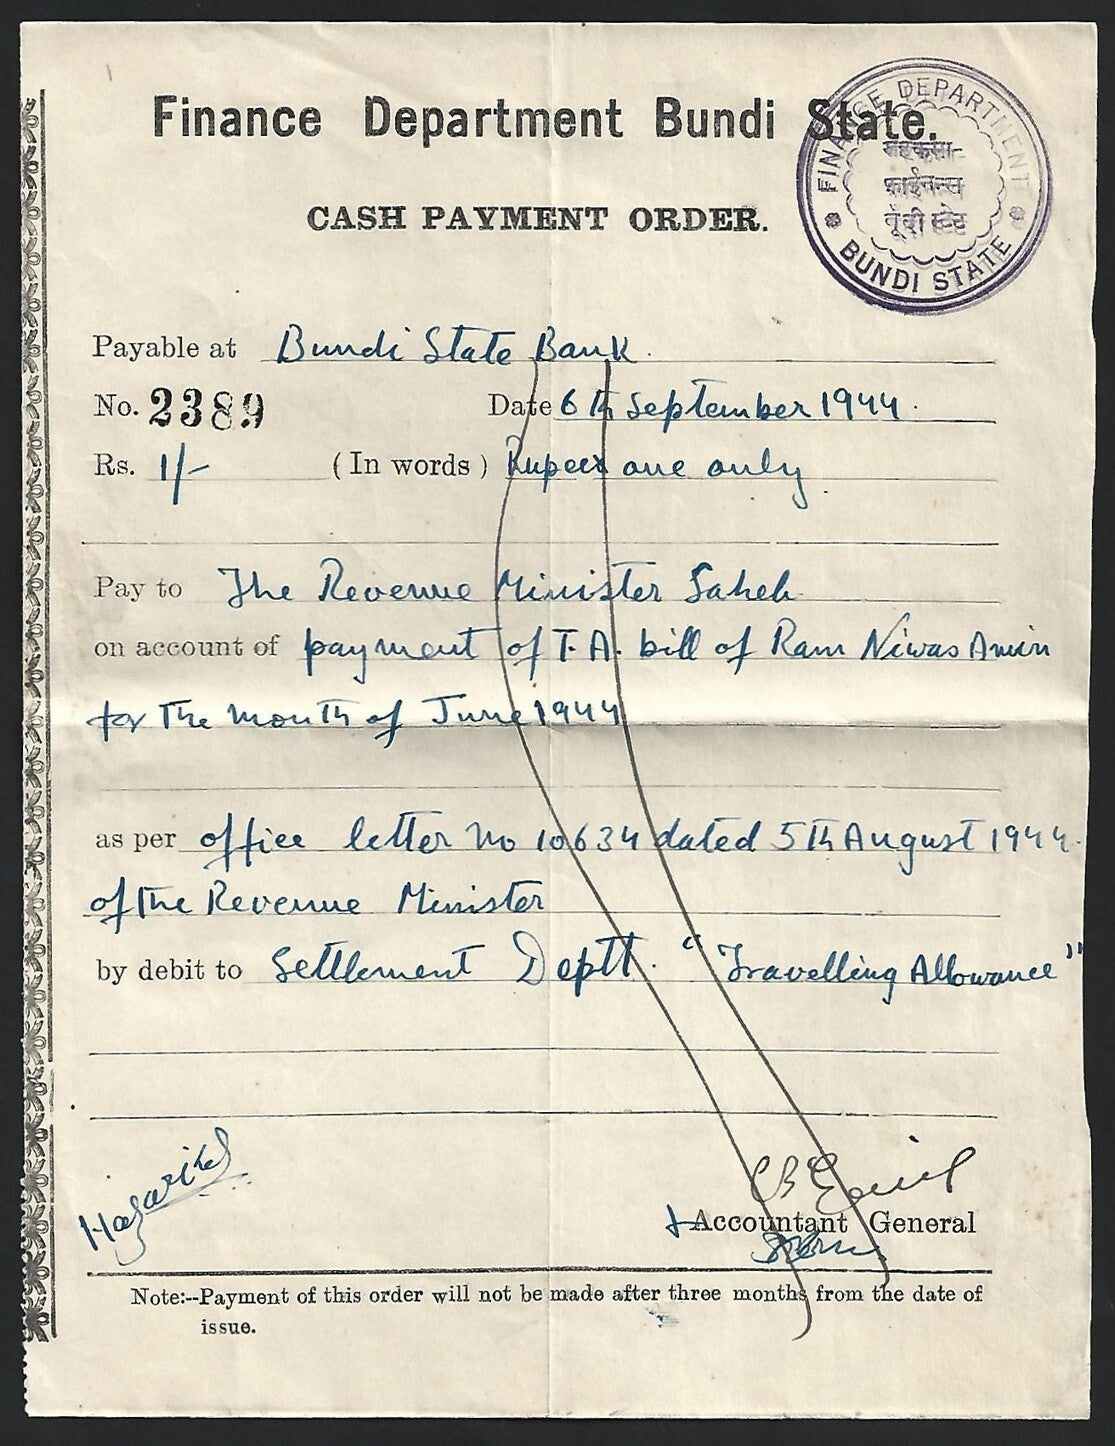 Finance Department Bundi State.
FINANCE DEPARTMENT
महकमा
फाईनन्स
बूंदी स्टेट
BUNDI STATE
CASH PAYMENT ORDER.
Payable at Bundi State Bank.
No. 2389 Date 6th September 1944.
Rs. 1/- (In words) Rupees one only
Pay to The Revenue Minister Saheb
on account of payment of T.A. bill of Ram Niwas Amin
for the month of June 1944
as per office letter No 10634 dated 5th August 1944.
of the Revenue Minister
by debit to Settlement Deptt. "Travelling Allowance"
Accountant General
Note:--Payment of this order will not be made after three months from the date of
issue.